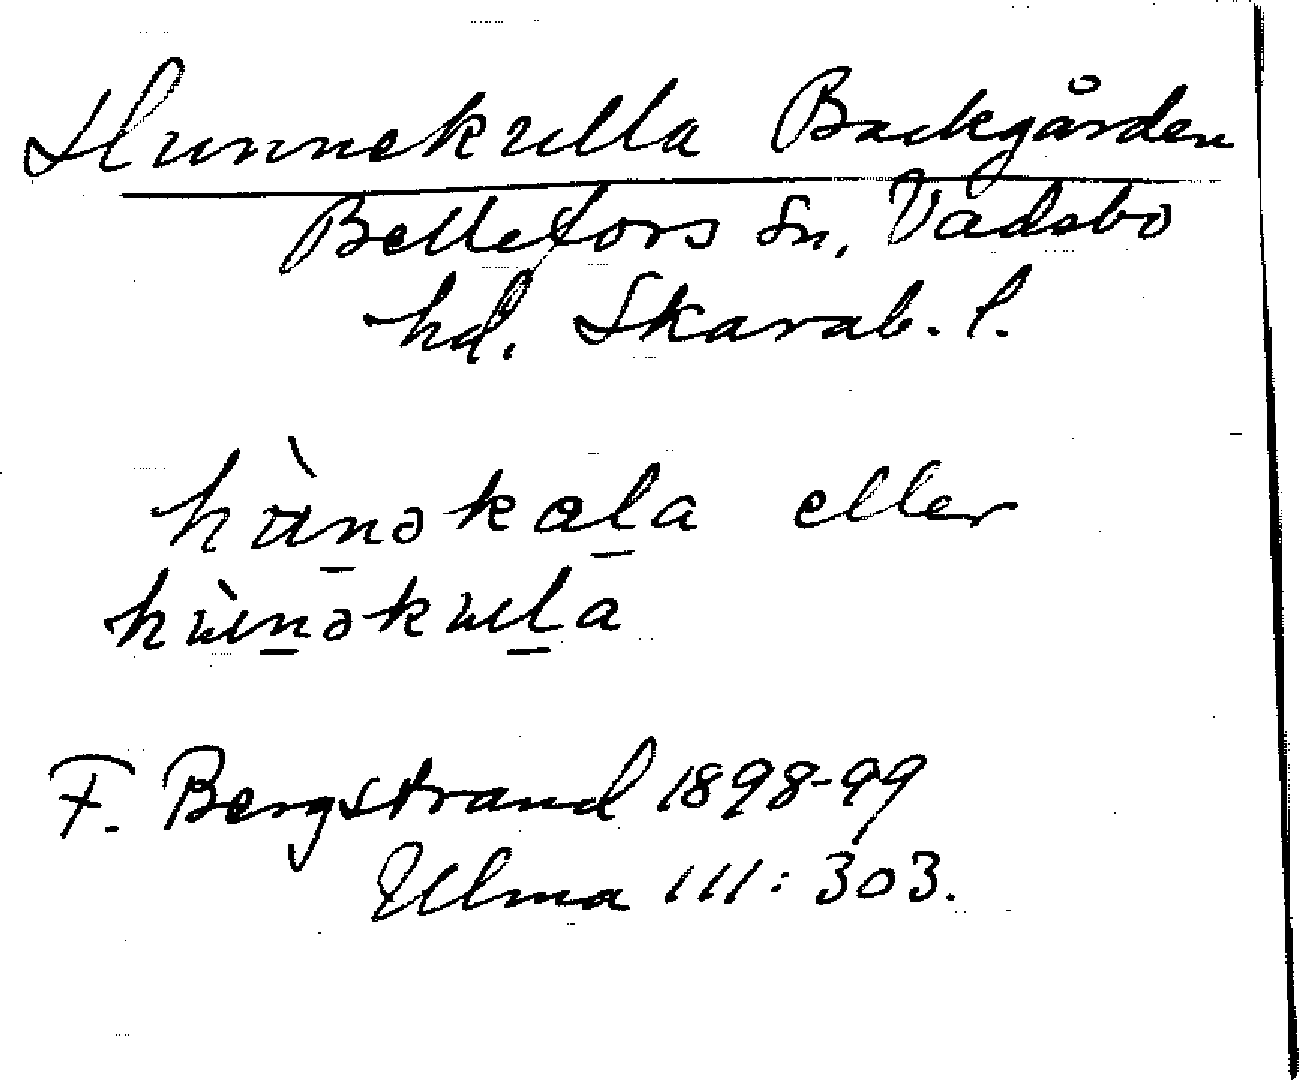 Hunnekulla Backgården
Bellefors Sn, Vadsbo
hd. Skarab. l.
hùnəkala eller
hùnəkula
F. Bergstrand 1898-99
Ulma 111:303.